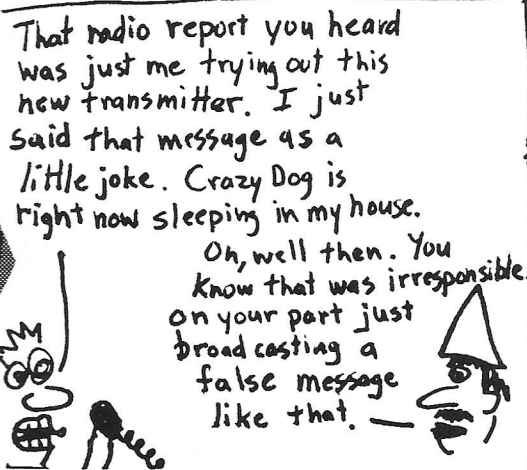 That radio report you heard
was just me trying out this
new transmitter. I just
said that message as a
little joke. Crazy Dog is
right now sleeping in my house.
Oh, well then. You
know that was irresponsible
on your part just
broadcasting a
false message
like that.